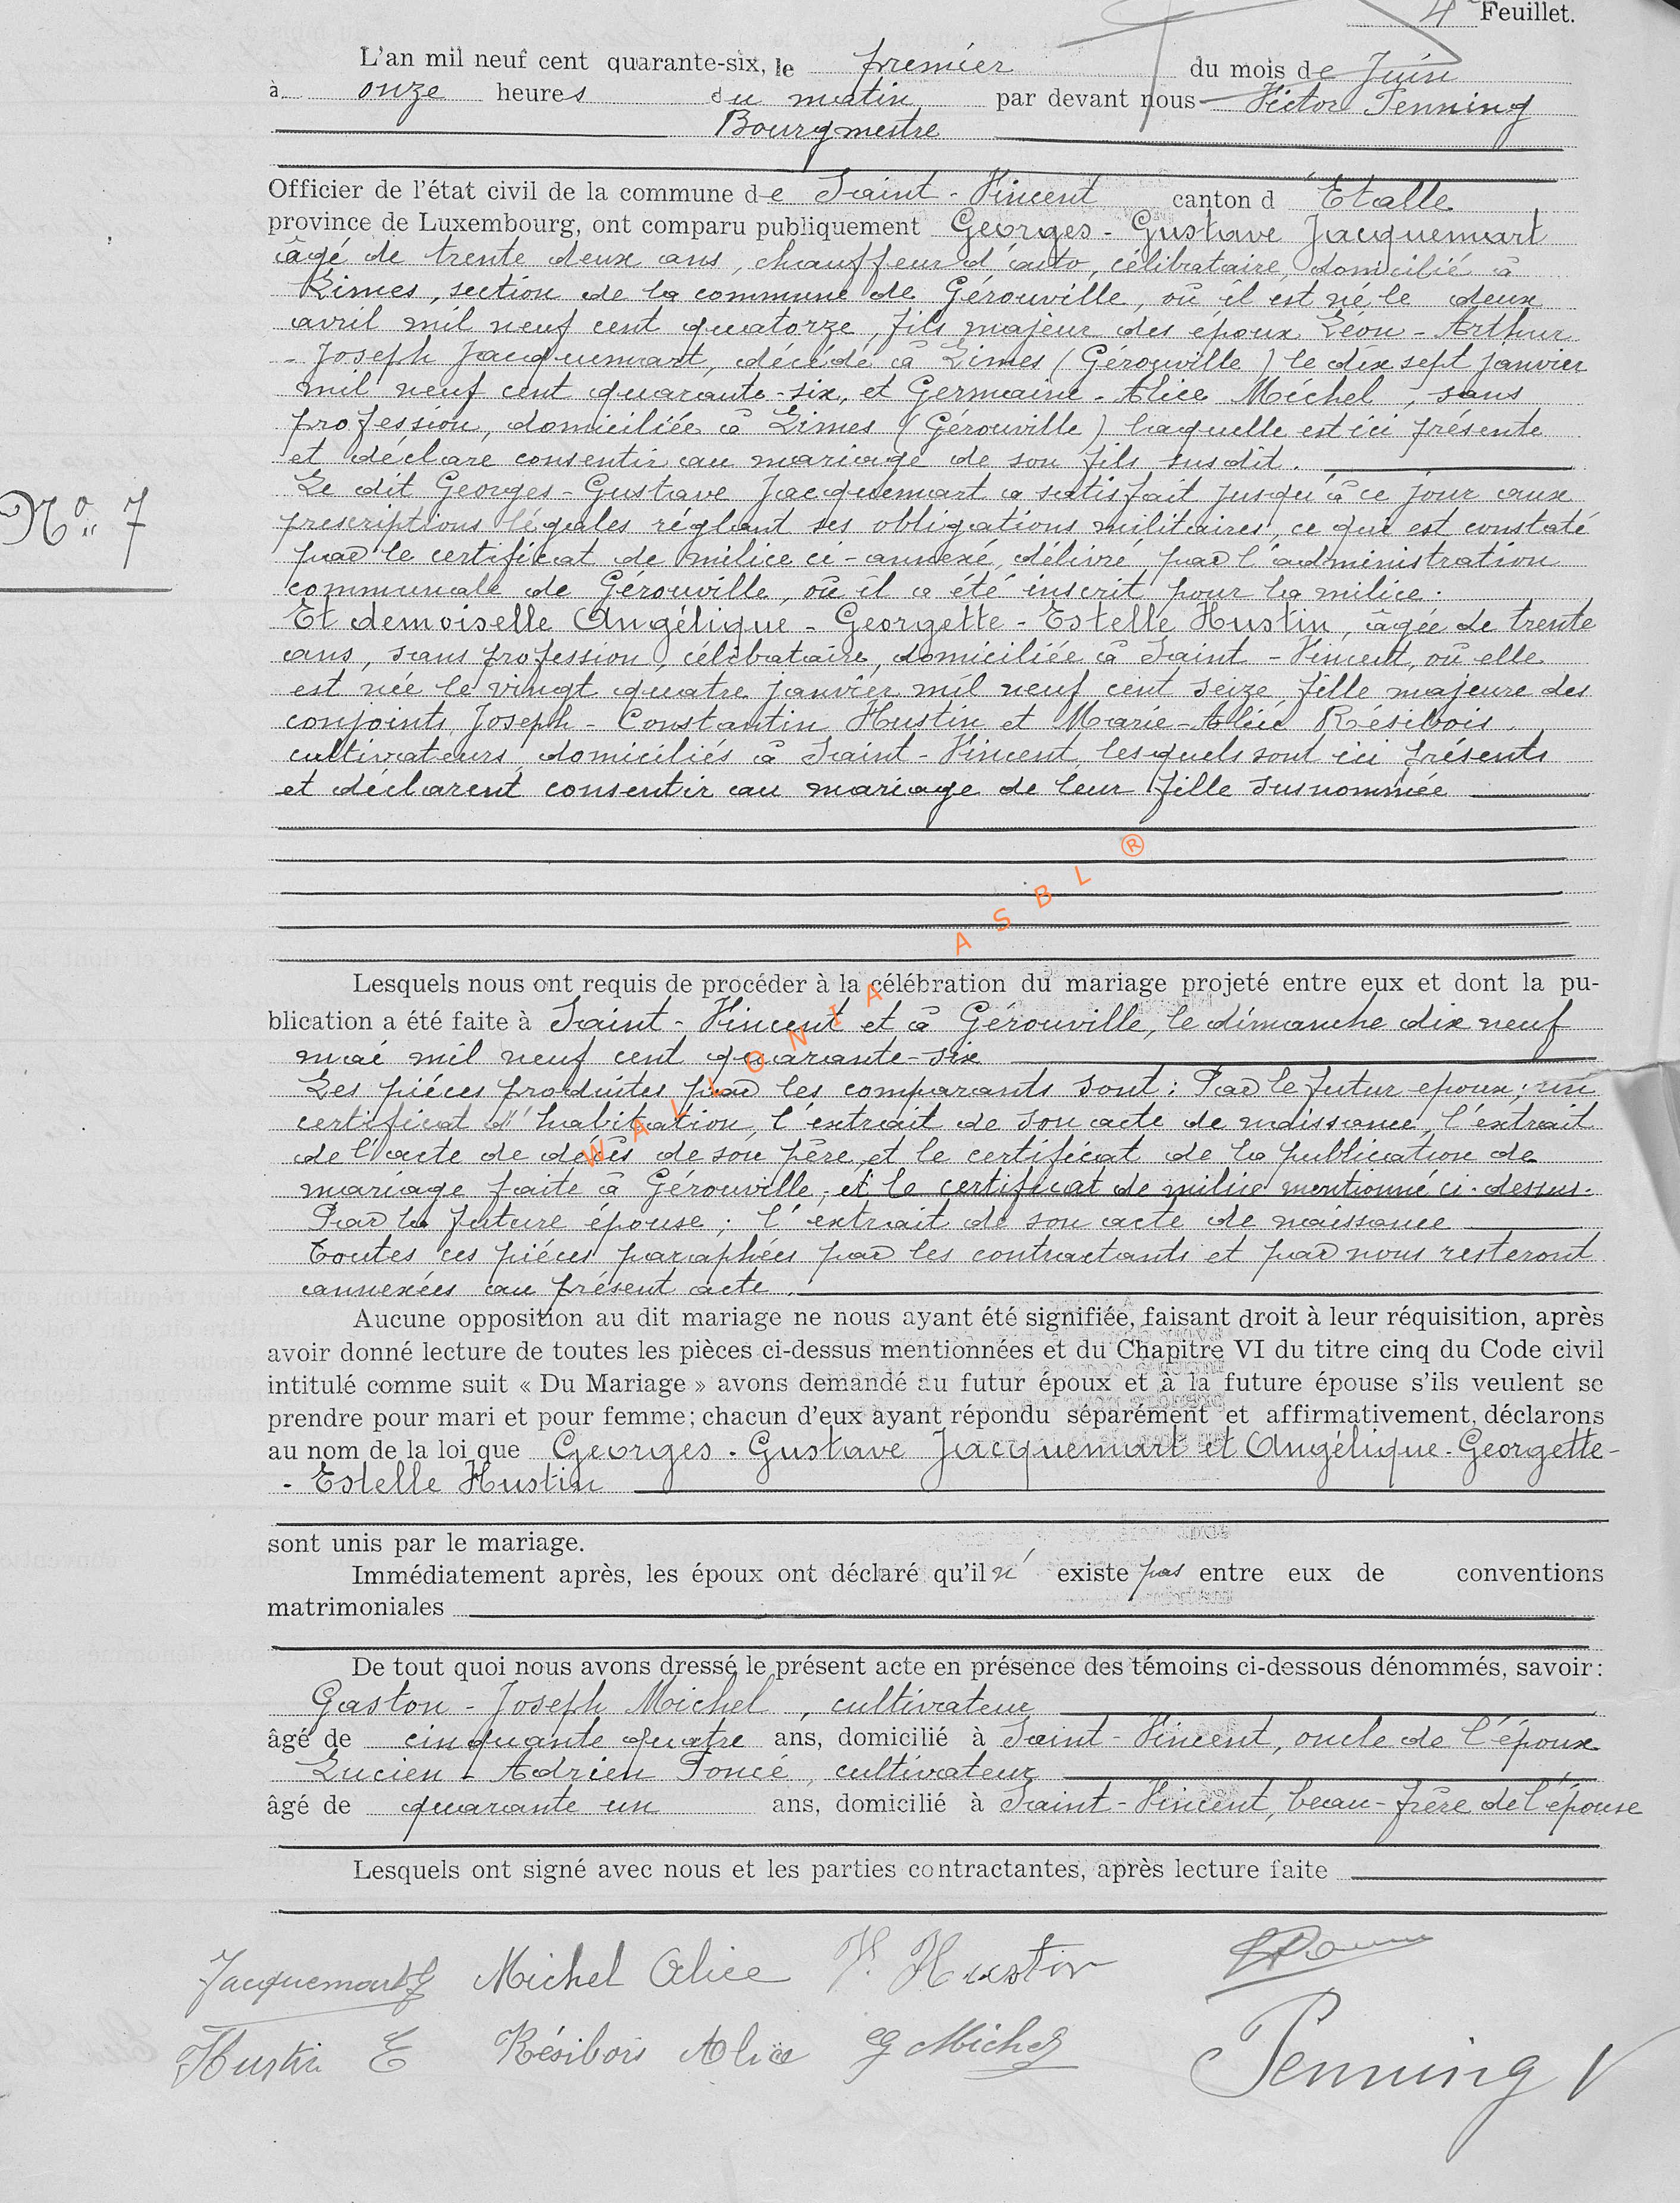 4e Feuillet.
L'an mil neuf cent quarante-six, le premier du mois de Juin
à onze heures du matin par devant nous Victor Penning
Bourgmestre
Officier de l'état civil de la commune de Saint-Vincent canton d'Etalle
province de Luxembourg, ont comparu publiquement Georges-Gustave Jacquemart
âgé de trente deux ans, chauffeur d'auto, célibataire, domicilié à
Limes, section de la commune de Gérouville, où il est né le deux
avril mil neuf cent quatorze, fils majeur des époux Léon-Arthur
-Joseph Jacquemart, décédé à Limes (Gérouville) le dix sept janvier
mil neuf cent quarante-six, et Germaine-Alice Michel, sans
profession, domiciliée à Limes (Gérouville) laquelle est ici présente
et déclare consentir au mariage de son fils susdit.
Le dit Georges-Gustave Jacquemart a satisfait jusqu'à ce jour aux
No 7
prescriptions légales réglant ses obligations militaires, ce qui est constaté
par le certificat de milice ci-annexé, délivré par l'administration
communale de Gérouville, où il a été inscrit pour la milice.
Et demoiselle Angélique-Georgette-Estelle Hustin, âgée de trente
ans, sans profession, célibataire, domiciliée à Saint-Vincent, où elle
est née le vingt quatre janvier mil neuf cent seize fille majeure des
conjoints Joseph-Constantin Hustin et Marie-Alice Résibois
cultivateurs, domiciliés à Saint-Vincent, lesquels sont ici présents
et déclarent consentir au mariage de leur fille susnommée
Lesquels nous ont requis de procéder à la célébration du mariage projeté entre eux et dont la pu-
blication a été faite à Saint-Vincent et à Gérouville, le dimanche dix neuf
mai mil neuf cent quarante-six
Les pièces produites par les comparants sont: Par le futur epoux; un
certificat d'habitation, l'extrait de son acte de naissance, l'extrait
de l'acte de décès de son père, et le certificat de la publication de
mariage faite à Gérouville, et le certificat de milice mentionné ci-dessus.
Par la future épouse; l'extrait de son acte de naissance
Toutes ces pièces paraphées par les contractants et par nous resteront
annexées au présent acte.
WALLONIA ASBL ®
Aucune opposition au dit mariage ne nous ayant été signifiée, faisant droit à leur réquisition, après
avoir donné lecture de toutes les pièces ci-dessus mentionnées et du Chapitre VI du titre cinq du Code civil
intitulé comme suit « Du Mariage » avons demandé au futur époux et à la future épouse s'ils veulent se
prendre pour mari et pour femme; chacun d'eux ayant répondu séparément et affirmativement, déclarons
au nom de la loi que Georges-Gustave Jacquemart et Angélique-Georgette-
-Estelle Hustin
sont unis par le mariage.
Immédiatement après, les époux ont déclaré qu'il n'existe pas entre eux de conventions
matrimoniales
De tout quoi nous avons dressé le présent acte en présence des témoins ci-dessous dénommés, savoir:
Gaston-Joseph Michel, cultivateur
âgé de cinquante quatre ans, domicilié à Saint-Vincent, oncle de l'époux
Lucien-Adrien Poncé, cultivateur
âgé de quarante un ans, domicilié à Saint-Vincent, beau-frère de l'épouse
Lesquels ont signé avec nous et les parties contractantes, après lecture faite
Jacquemart G Michel Alice J. Hustin
Hustin E Résibois Alice G Michel Penning V